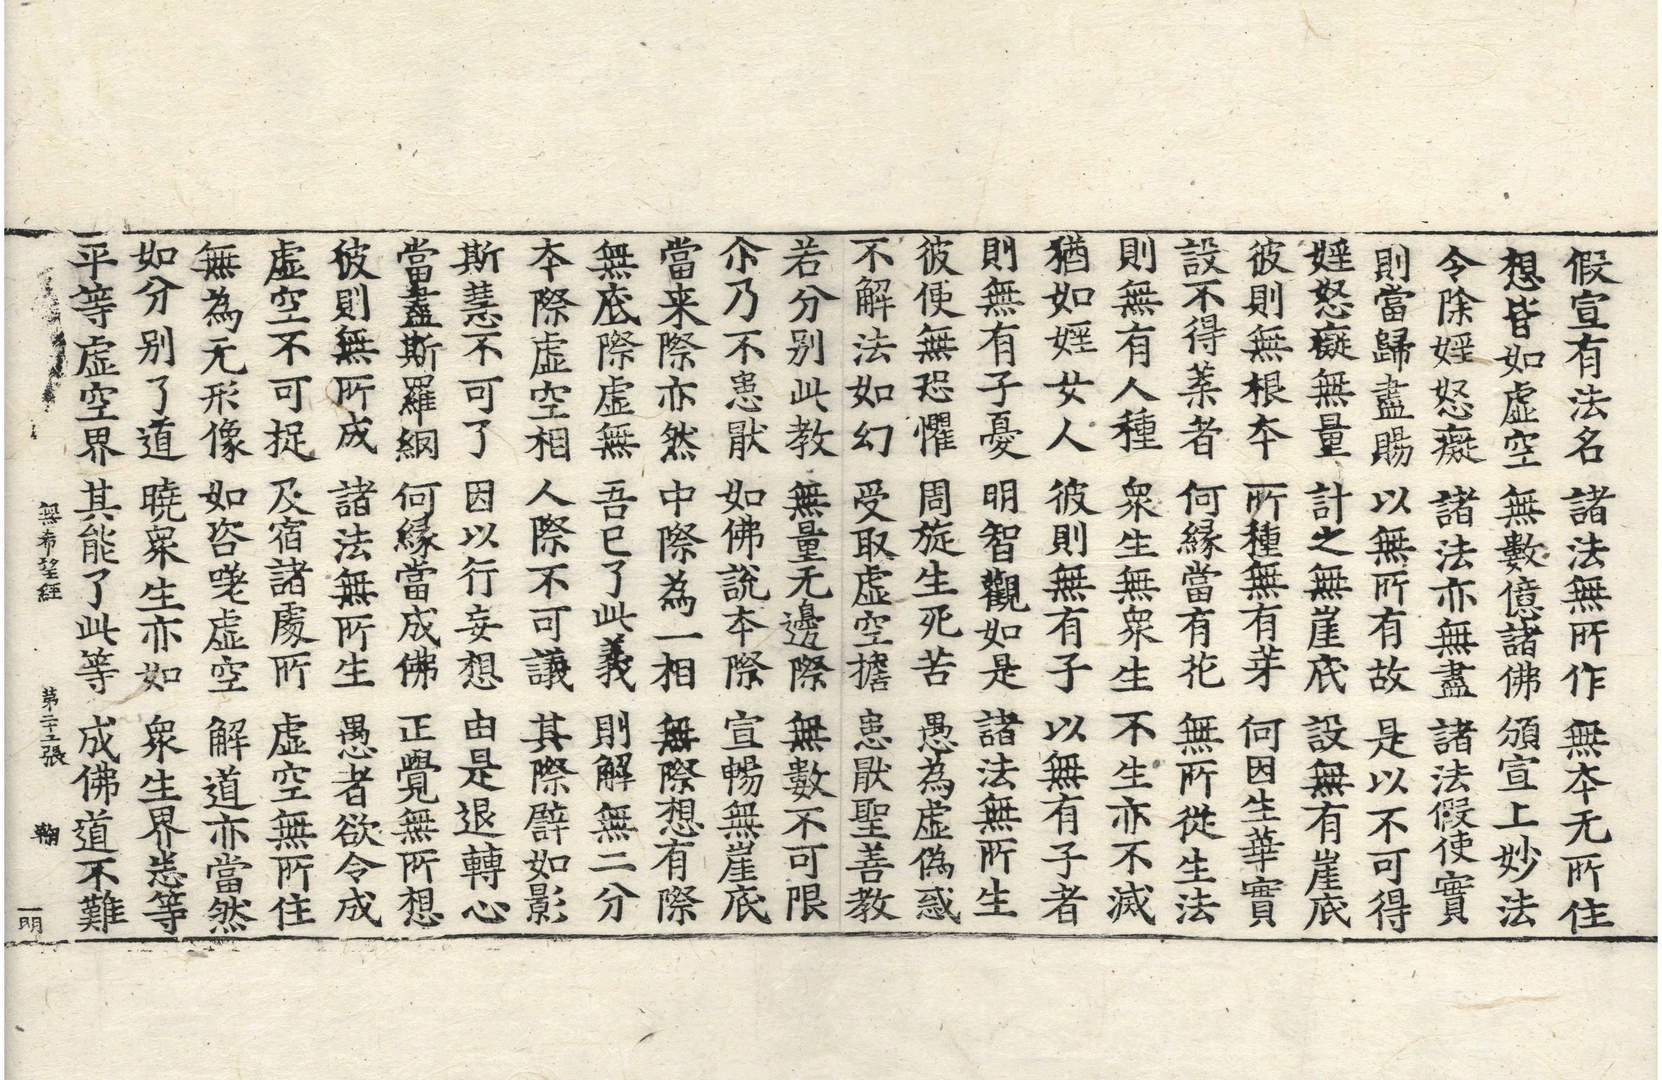 假宣有法名 諸法無所作 無本无所住
想皆如虛空 無數億諸佛 頒宣上妙法
令除婬怒癡 諸法亦無盡 諸法假使實
則當歸盡賜 以無所有故 是以不可得
婬怒癡無量 計之無崖底 設無有崖底
彼則無根本 所種無有芽 何因生華實
設不得葉者 何緣當有花 無所從生法
則無有人種 衆生無衆生 不生亦不滅
猶如婬女人 彼則無有子 以無有子者
則無有子憂 明智觀如是 諸法無所生
彼便無恐懼 周旋生死苦 愚為虛偽惑
不解法如幻 受取虛空擔 患猒聖善教
若分别此教 無量无邊際 無數不可限
尒乃不患猒 如佛說本際 宣暢無崖底
當来際亦然 中際為一相 無際想有際
無底際虛無 吾已了此義 則解無二分
本際虛空相 人際不可議 其際譬如影
斯慧不可了 因以行妄想 由是退轉心
當盡斯羅網 何緣當成佛 正覺無所想
彼則無所成 諸法無所生 愚者欲令成
虛空不可捉 及宿諸處所 虛空無所住
無為无形像 如咨嗟虛空 解道亦當然
如分别了道 曉衆生亦如 衆生界悉等
平等虛空界 其能了此等 成佛道不難
無希望經 第二十二張 鞠
一明